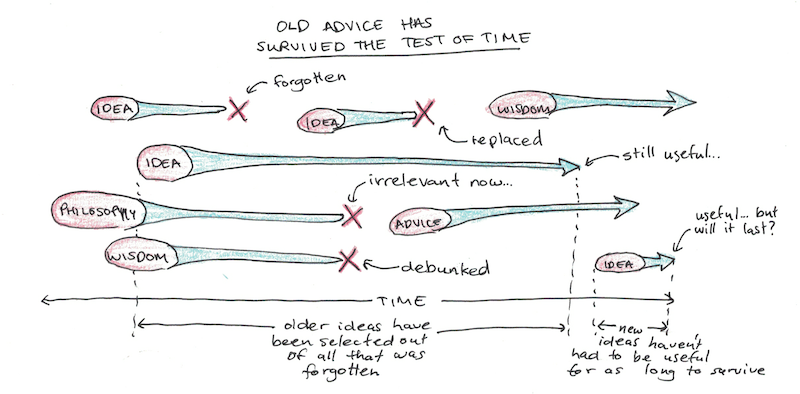 OLD ADVICE HAS
SURVIVED THE TEST OF TIME
IDEA
forgotten
IDEA
replaced
WISDOM
IDEA
still useful...
PHILOSOPHY
irrelevant now...
ADVICE
useful... but
will it last?
WISDOM
debunked
IDEA
TIME
older ideas have
been selected out
of all that was
forgotten
new
ideas haven't
had to be useful
for as long to survive